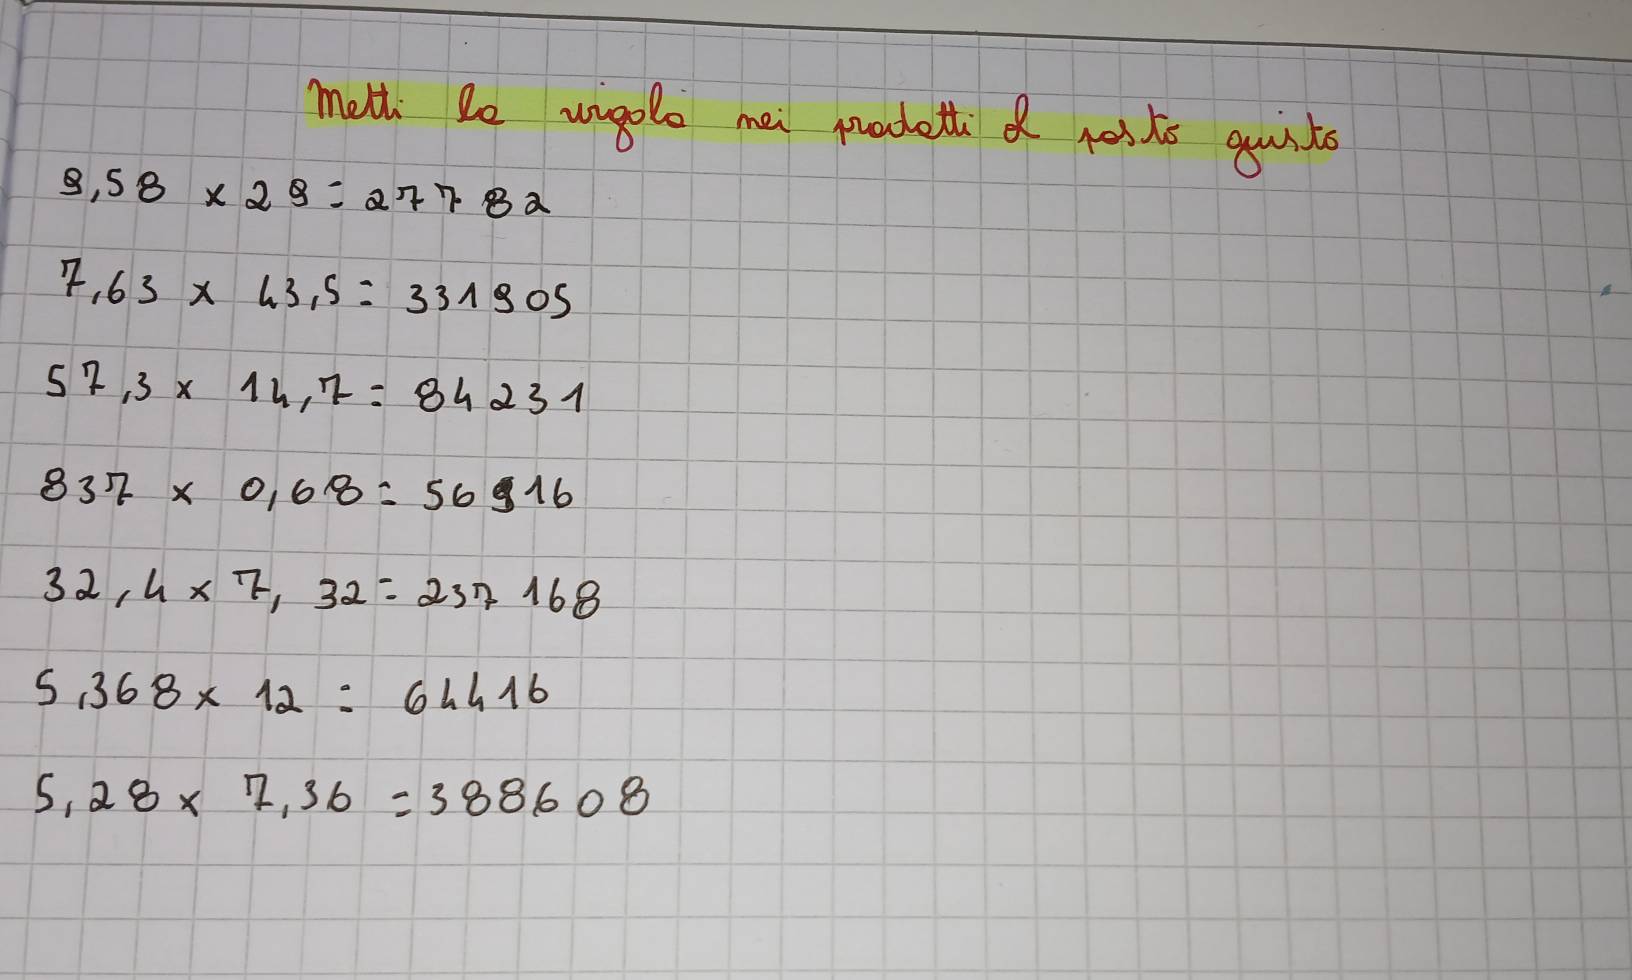 Metti la virgola nei prodotti al posto giusto
9,58 x 29 = 27782
7,63 x 43,5 = 331905
57,3 x 14,7 = 84231
837 x 0,68 = 56916
32,4 x 7,32 = 237168
5,368 x 12 = 64416
5,28 x 7,36 = 388608